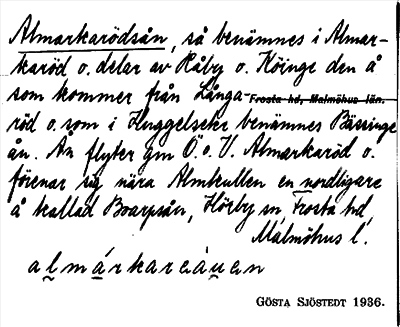 Almarkarödsån, så benämnes i Almar-
karöd o. delar av Råby o. Köinge den å
som kommer från Långa-
Frosta hd, Malmöhus län.
röd o. som i Huggelseke benämnes Bässinge
ån. Ån flyter gm Ö. o. V. Almarkaröd o.
förenar sig nära Almkullen en nordligare
å kallad Boarpsån, Hörby sn, Frosta hd,
Malmöhus l.
GÖSTA SJÖSTEDT 1936.